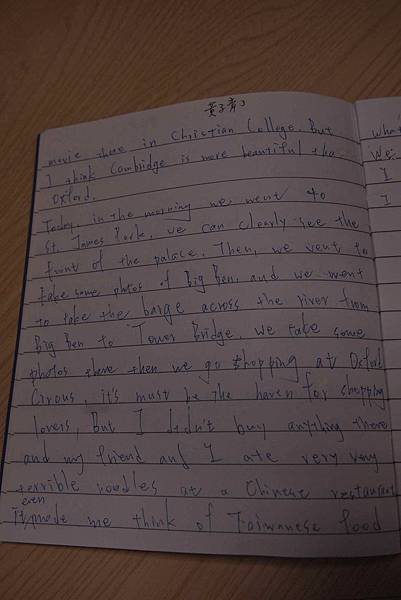 movie there in Christian College. But
I think Cambridge is more beautiful tha
Oxford.
Today, in the morning we went to
St. James Park, we can clearly see the
front of the palace. Then, we went to
take some photos of Big Ben, and we went
to take the barge across the river from
Big Ben to Tower Bridge. We take some
photos there then we go shopping at Oxford
Circus, it's must be the haven for shopping
lovers, But I didn't buy anything there
and my friend and I ate very very
terrible noodles at a Chinese restaurant
even
It made me think of Taiwanese food
what
We
I
I